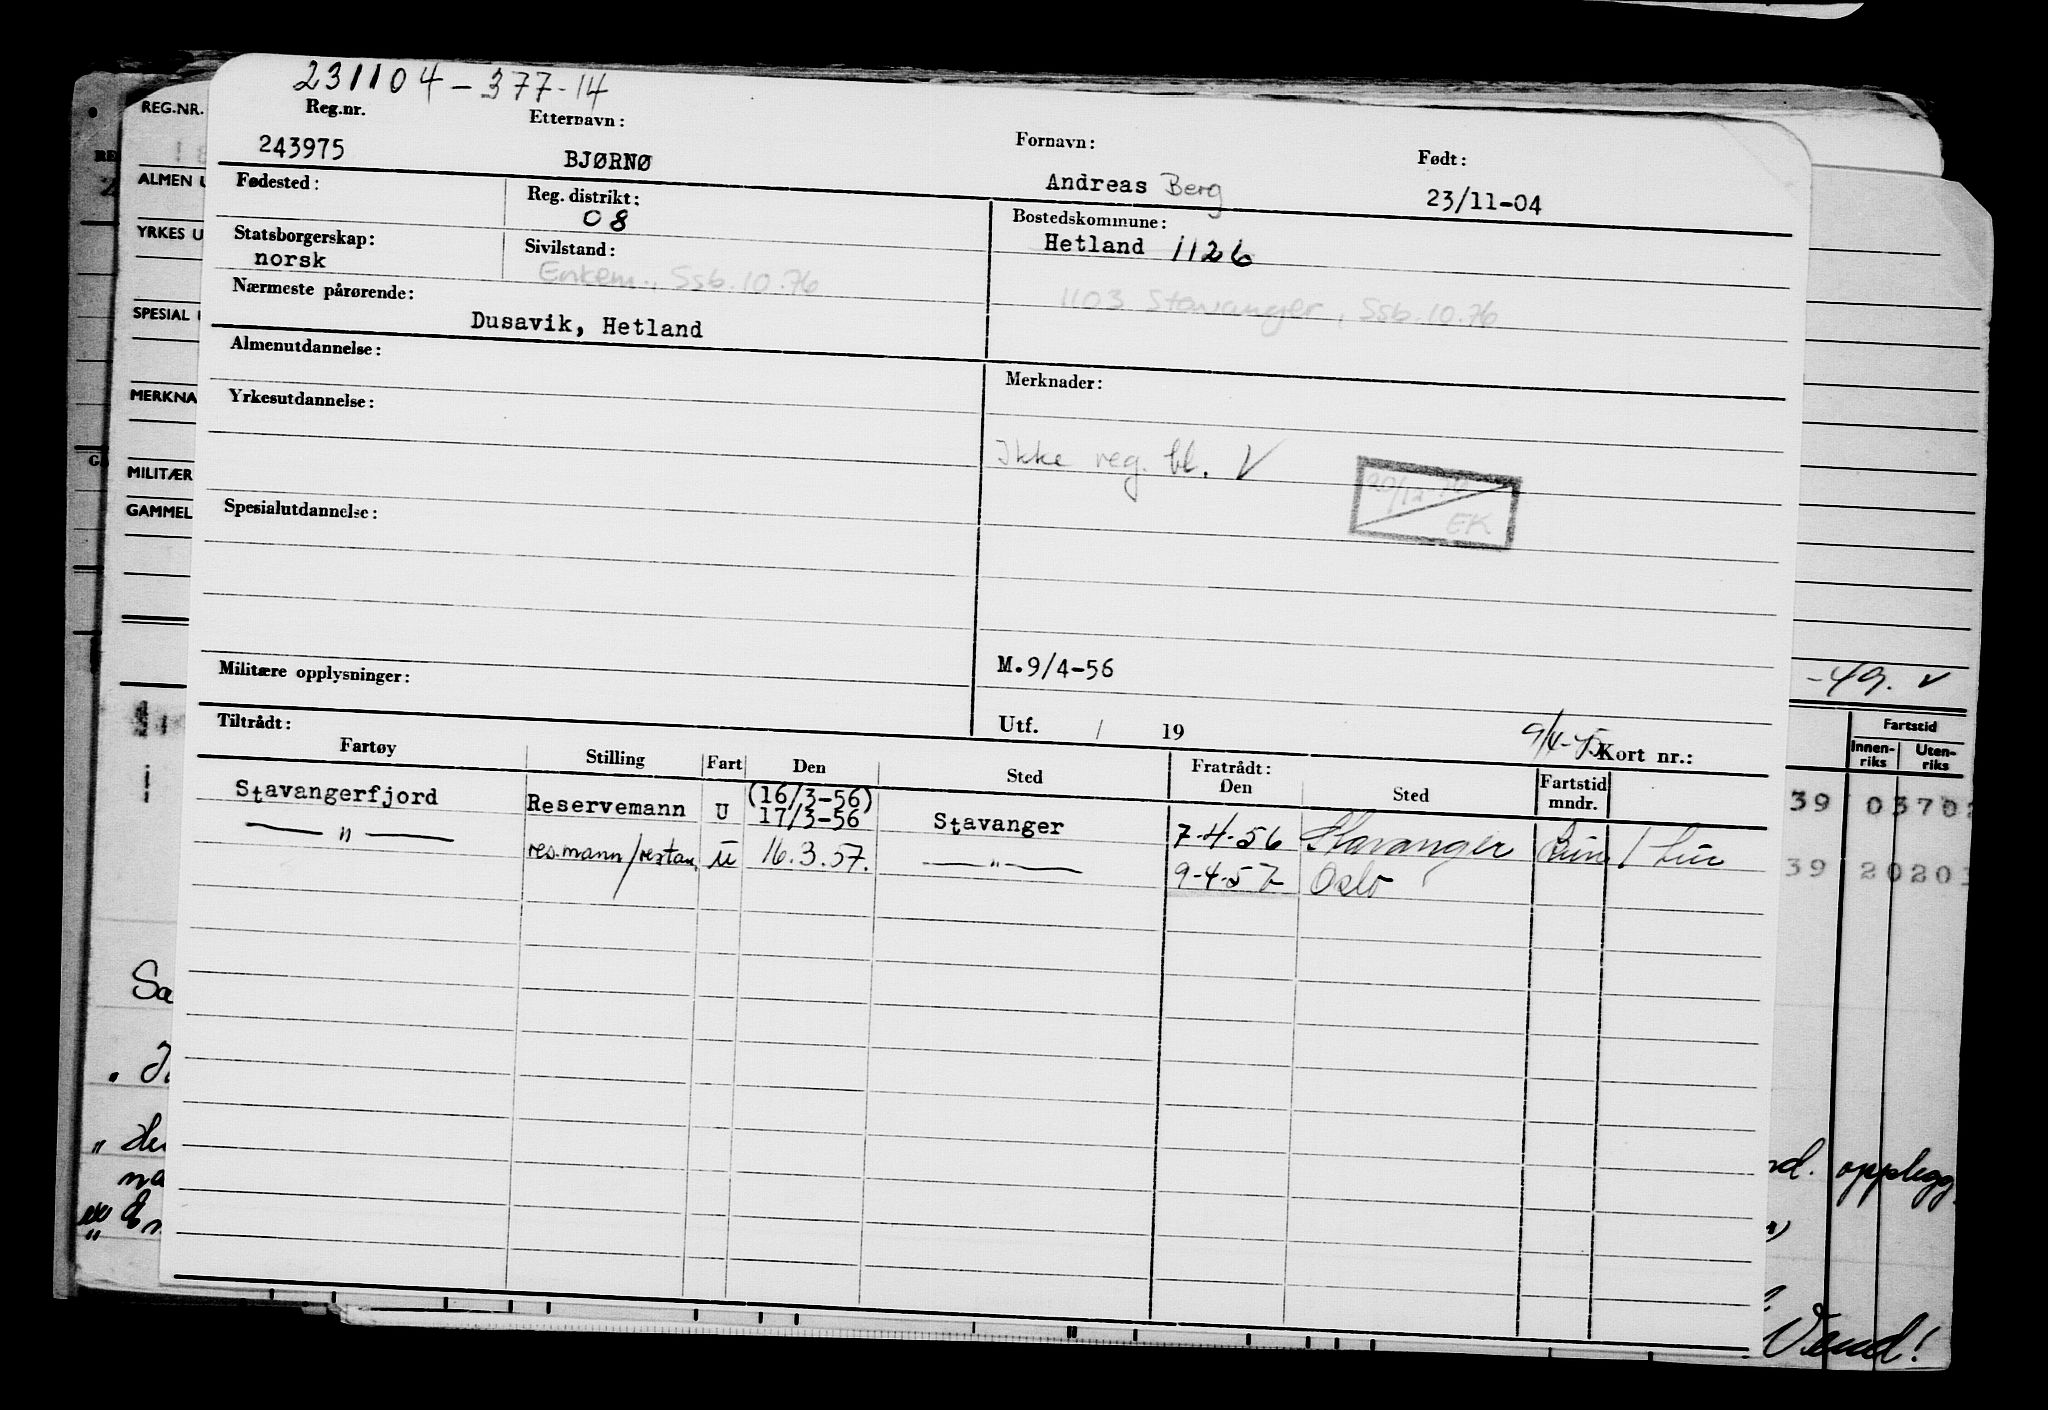 231104-377-14
REG.NR. Reg.nr. Etternavn: Fornavn: Født:
243975 BJØRNØ Andreas Berg 23/11-04
ALMEN U Fødested: Reg. distrikt: Bostedskommune:
08 Hetland 1126
YRKES U Statsborgerskap: Sivilstand:
norsk Enkem., Ssb.10.76
Nærmeste pårørende: 1103 Stavanger, Ssb.10.76
SPESIAL Dusavik, Hetland
Almenutdannelse: Merknader:
MERKNA Yrkesutdannelse:
Ikke reg. bl. V
MILITÆR
GAMMEL Spesialutdannelse: EK
M.9/4-56
Militære opplysninger: -49. v
Tiltrådt: Utf. / 19 Kort nr.: Fartstid
Fartøy Stilling Fart Den Sted Fratrådt: Den Sted Fartstid mndr. Innen-riks Uten-riks
Stavangerfjord Reservemann U (16/3-56) 17/3-56 Stavanger 7-4-56 Stavanger 39 0370
— " — res.mann/restau. u 16.3.57. — " — 9-4-57 Oslo 39 20203
Sa
nd. opplegg
na
En
Vend!